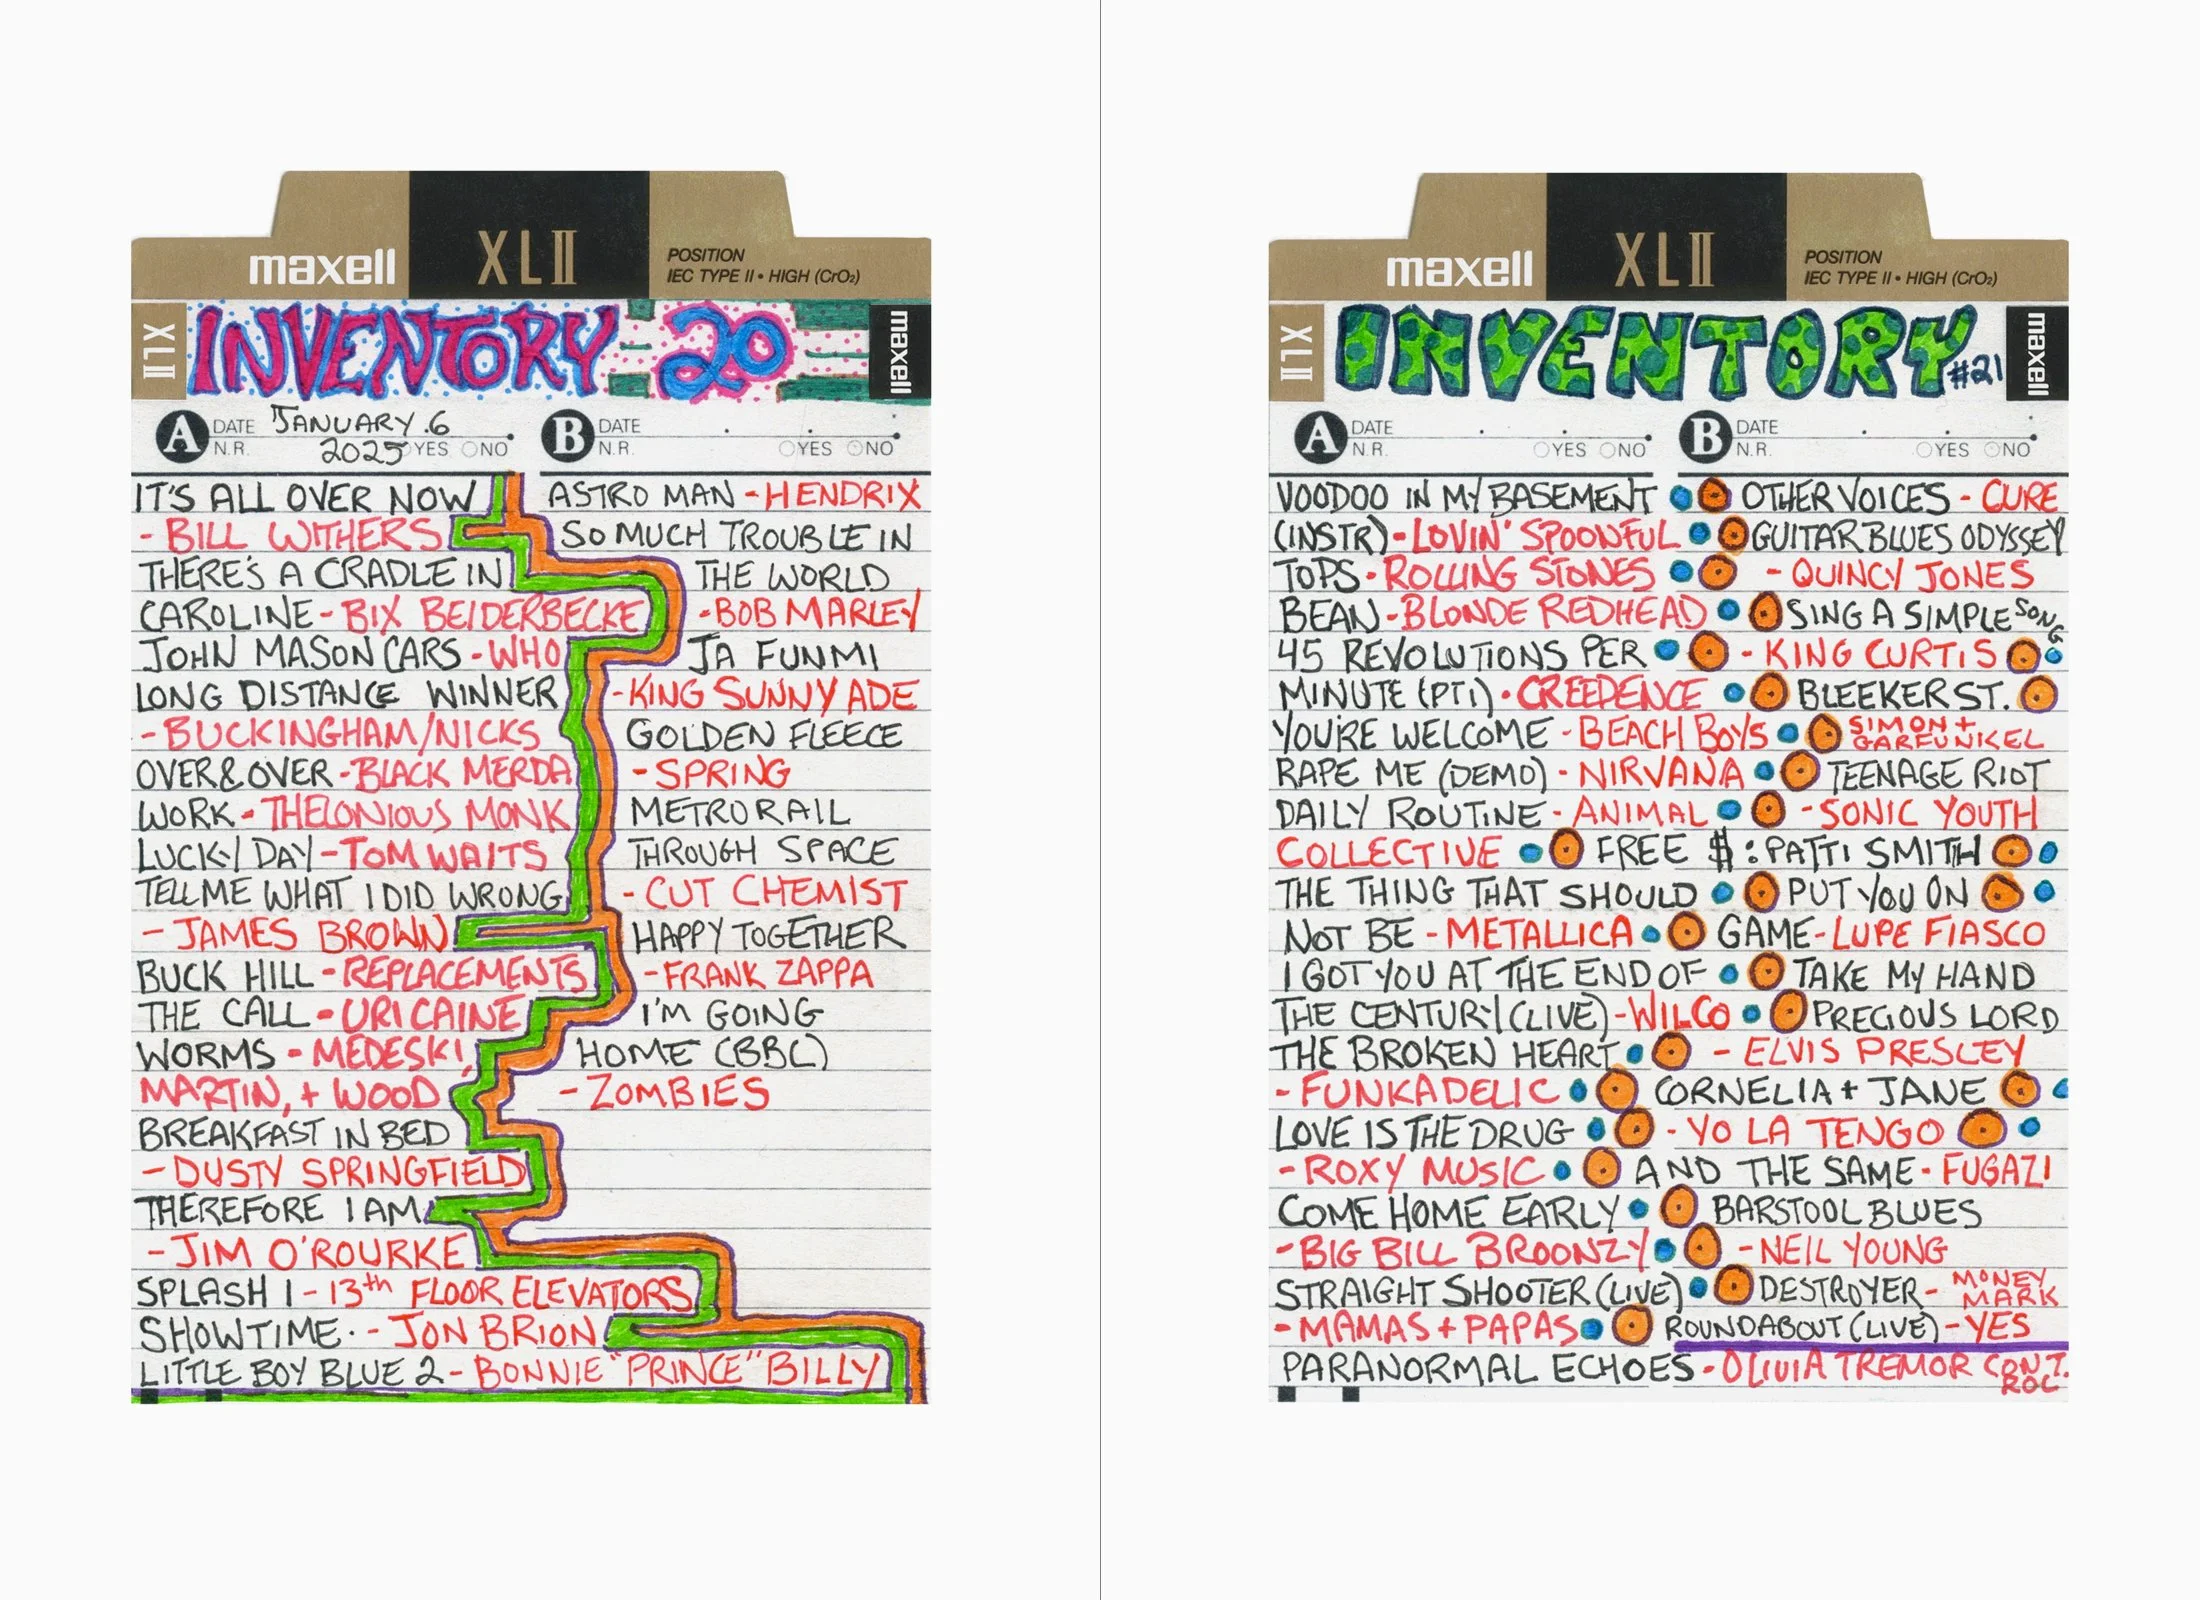 maxell
XLII
POSITION
IEC TYPE II • HIGH (CrO₂)
XLII
INVENTORY 20
maxell
A DATE JANUARY.6
N.R. 2025 YES NO
B DATE
N.R. YES NO
IT'S ALL OVER NOW
- BILL WITHERS
THERE'S A CRADLE IN
CAROLINE - BIX BEIDERBECKE
JOHN MASON CARS - WHO
LONG DISTANCE WINNER
- BUCKINGHAM/NICKS
OVER & OVER - BLACK MERDA
WORK - THELONIOUS MONK
LUCKY DAY - TOM WAITS
TELL ME WHAT I DID WRONG
- JAMES BROWN
BUCK HILL - REPLACEMENTS
THE CALL - URI CAINE
WORMS - MEDESKI,
MARTIN, + WOOD
BREAKFAST IN BED
- DUSTY SPRINGFIELD
THEREFORE I AM
- JIM O'ROURKE
SPLASH 1 - 13th FLOOR ELEVATORS
SHOWTIME - JON BRION
LITTLE BOY BLUE 2 - BONNIE "PRINCE" BILLY
ASTRO MAN - HENDRIX
SO MUCH TROUBLE IN
THE WORLD
- BOB MARLEY
JA FUNMI
- KING SUNNY ADE
GOLDEN FLEECE
- SPRING
METRORAIL
THROUGH SPACE
- CUT CHEMIST
HAPPY TOGETHER
- FRANK ZAPPA
I'M GOING
HOME (BBC)
- ZOMBIES
maxell
XLII
POSITION
IEC TYPE II • HIGH (CrO₂)
XLII
INVENTORY #21
maxell
A DATE
N.R. YES NO
B DATE
N.R. YES NO
VOODOO IN MY BASEMENT
(INSTR) - LOVIN' SPOONFUL
TOPS - ROLLING STONES
BEAN - BLONDE REDHEAD
45 REVOLUTIONS PER
MINUTE (PT1) - CREEDENCE
YOU'RE WELCOME - BEACH BOYS
RAPE ME (DEMO) - NIRVANA
DAILY ROUTINE - ANIMAL
COLLECTIVE
THE THING THAT SHOULD
NOT BE - METALLICA
I GOT YOU AT THE END OF
THE CENTURY (LIVE) - WILCO
THE BROKEN HEART
- FUNKADELIC
LOVE IS THE DRUG
- ROXY MUSIC
COME HOME EARLY
- BIG BILL BROONZY
STRAIGHT SHOOTER (LIVE)
- MAMAS + PAPAS
PARANORMAL ECHOES - OLIVIA TREMOR CONT.
ROL
OTHER VOICES - CURE
GUITAR BLUES ODYSSEY
- QUINCY JONES
SING A SIMPLE SONG
- KING CURTIS
BLEEKER ST.
SIMON +
GARFUNKEL
TEENAGE RIOT
- SONIC YOUTH
FREE $ : PATTI SMITH
PUT YOU ON
GAME - LUPE FIASCO
TAKE MY HAND
PRECIOUS LORD
- ELVIS PRESLEY
CORNELIA + JANE
- YO LA TENGO
AND THE SAME - FUGAZI
BARSTOOL BLUES
- NEIL YOUNG
DESTROYER - MONEY
MARK
ROUNDABOUT (LIVE) - YES